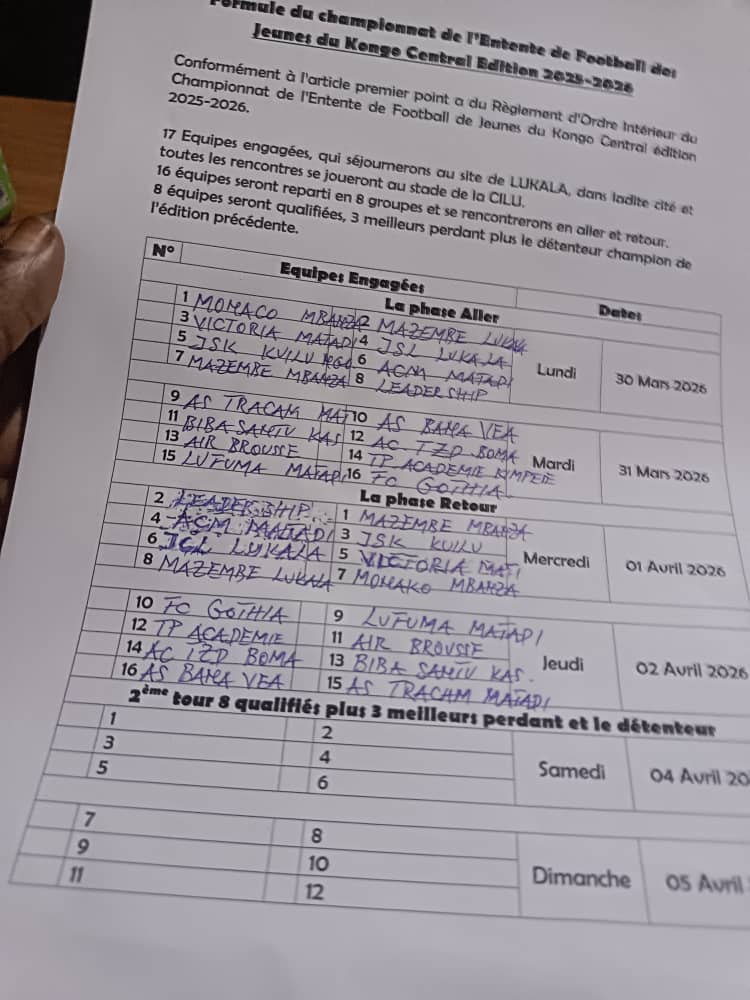 Formule du championnat de l'Entente de Football des
Jeunes du Kongo Central Edition 2025-2026
Conformément à l'article premier point a du Règlement d'Ordre Intérieur du
Championnat de l'Entente de Football de Jeunes du Kongo Central édition
2025-2026.
17 Equipes engagées, qui séjournerons au site de LUKALA, dans ladite cité et
toutes les rencontres se joueront au stade de la CILU.
16 équipes seront reparti en 8 groupes et se rencontrerons en aller et retour.
8 équipes seront qualifiées, 3 meilleurs perdant plus le détenteur champion de
l'édition précédente.
N° Equipes Engagées Dates
La phase Aller
1 MONACO MBANZA 2 MAZEMBE LUKALA
3 VICTORIA MATADI 4 JSL LUKALA
5 JSK KUILU 6 ACM MATADI
7 MAZEMBE MBANZA 8 LEADERSHIP
Lundi 30 Mars 2026
9 AS TRACAM MAT 10 AS BANA VEA
11 BIBA SANTU KAS 12 AC TZD BOMA
13 AIR BROUSSE 14 TP ACADEMIE KIMPESE
15 LUFUMA MATADI 16 FC GOTHIA
Mardi 31 Mars 2026
La phase Retour
2 LEADERSHIP 1 MAZEMBE MBANZA
4 ACM MATADI 3 JSK KUILU
6 JSL LUKALA 5 VICTORIA MATI
8 MAZEMBE LUKALA 7 MONAKO MBANZA
Mercredi 01 Avril 2026
10 FC GOTHIA 9 LUFUMA MATADI
12 TP ACADEMIE 11 AIR BROUSSE
14 AC IZD BOMA 13 BIBA SANTU KAS.
16 AS BANA VEA 15 AS TRACAM MATADI
Jeudi 02 Avril 2026
2ème tour 8 qualifiés plus 3 meilleurs perdant et le détenteur
1 2
3 4
5 6
Samedi 04 Avril 20
7 8
9 10
11 12
Dimanche 05 Avril